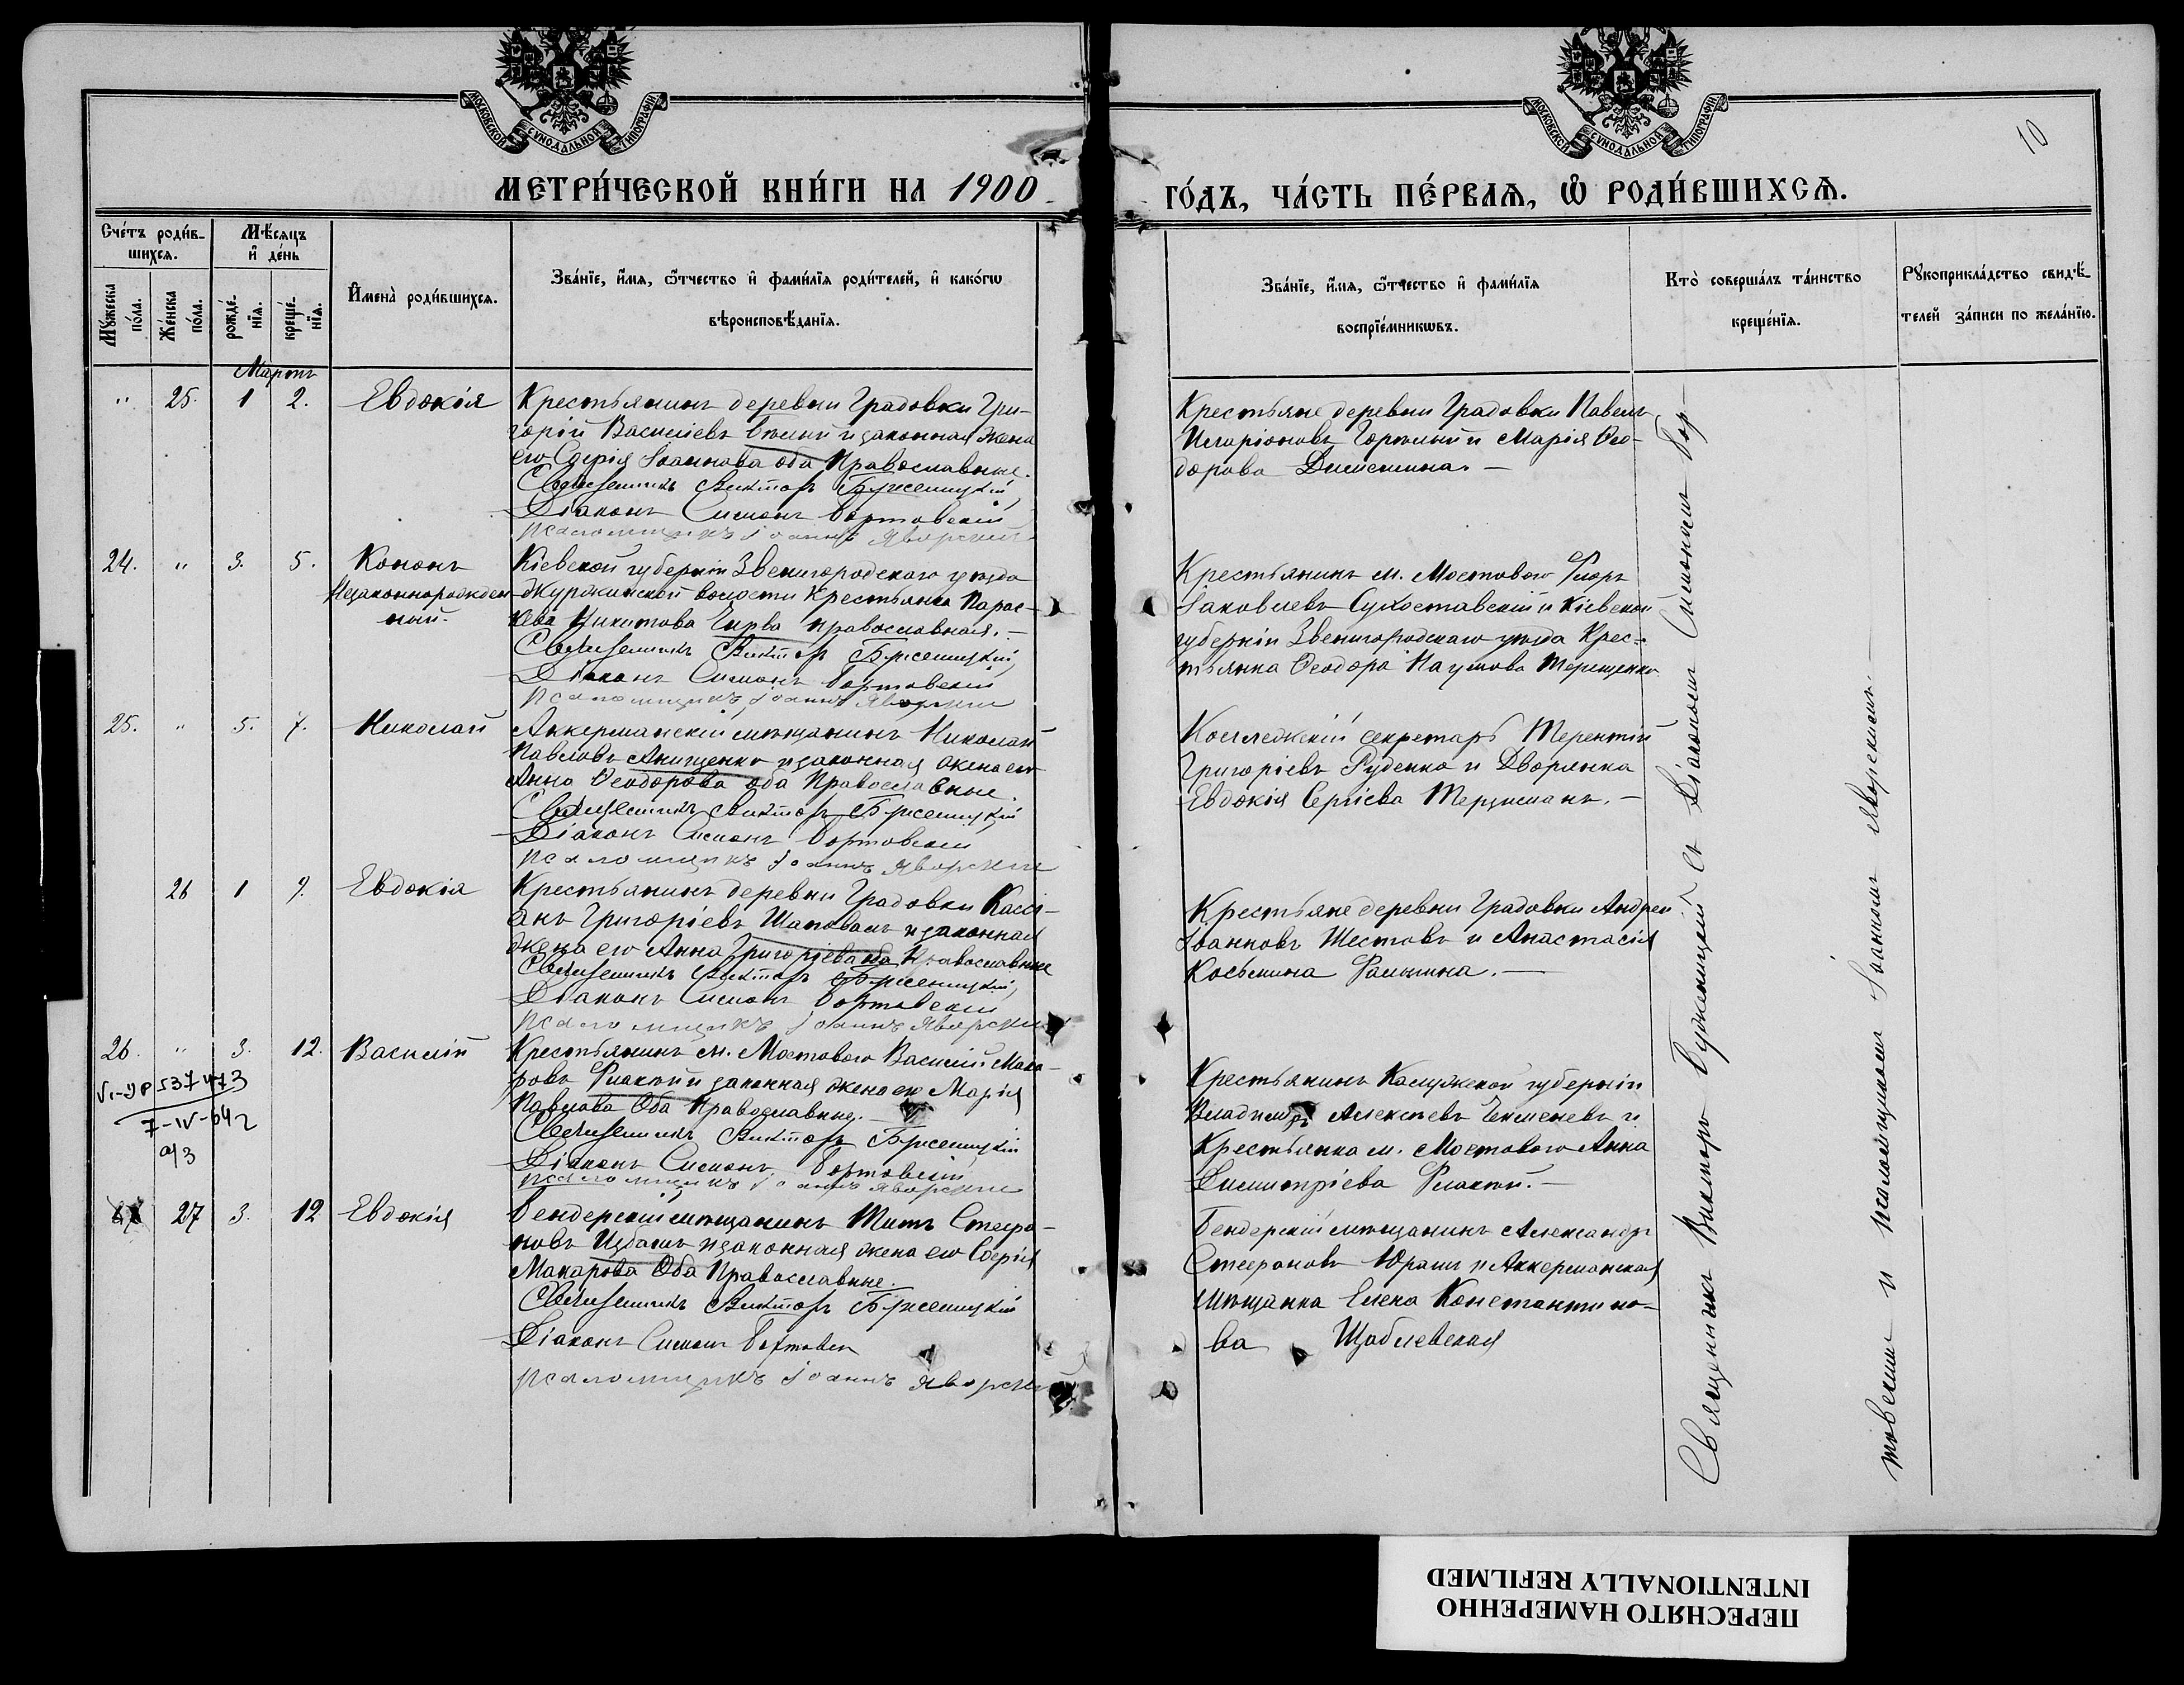 МОСКОВСКОЙ СѴНОДАЛЬНОЙ ТИПОГРАФІИ
МОСКОВСКОЙ СѴНОДАЛЬНОЙ ТИПОГРАФІИ
10
МЕТРИ́ЧЕСКОЙ КНИ́ГИ НА 1900
ГО́ДЪ, ЧА́СТЬ ПЕ́РВАѦ, Ѡ҆ РОДИ́ВШИХСѦ.
Сче́тъ роди́в-
шихсѧ.
Мѣ́сѧцъ
и҆ де́нь
Мꙋ́жеска
по́ла.
Же́нска
по́ла.
рожде́-
нїѧ.
креще́-
нїѧ.
И҆мена̀ роди́вшихсѧ.
Зва́нїе, и҆́мѧ, ѻ҆́тчество и҆ фами́лїѧ роди́телей, и҆ како́гѡ
вѣроисповѣ́данїѧ.
Зва́нїе, и҆́мѧ, ѻ҆́тчество и҆ фами́лїѧ
воспрїе́мникѡвъ.
Кто̀ соверша́лъ та́инство
креще́нїѧ.
Рꙋкоприкла́дство свидѣ́-
телей за́писи по жела́нїю.
Мартъ
" 25. 1 2. Евдокія
Крестьянинъ деревни Градовки Гри-
горій Василіевъ и законная жена
его Софія Іоаннова оба Православные.
Священникъ Викторъ Буженицкій
Діаконъ Симонъ Бортовскій
Псаломщикъ Іоаннъ Яворскій
Крестьяне деревни Градовки Павелъ
Иларіоновъ и Марія Ѳео-
дорова
24. " 3. 5. Кононъ
Незаконнорожден
ный.
Кіевской губерніи Звенигородского уѣзда
волости Крестьянка Парас-
кева Никитова православная. —
Священникъ Викторъ Буженицкій
Діаконъ Симонъ Бортовскій
Псаломщикъ Іоаннъ Яворскій
Крестьянинъ м. Мостового Флоръ
Іаковлевъ Сухоставскій и Кіевской
губерніи Звенигородскаго уѣзда Крес-
тьянка Ѳеодора Наумова Терещенко
25. " 5. 7. Николай
Аккерманскій мѣщанинъ Николай
Павловъ Анищенко и законная жена его
Анна Ѳеодорова оба Православные.
Священникъ Викторъ Буженицкій
Діаконъ Симонъ Бортовскій
Псаломщикъ Іоаннъ Яворскій
Коллежскій секретарь Терентій
Григоріевъ Руденко и Дворянка
Евдокія Сергіева
26 1 9. Евдокія
Крестьянинъ деревни Градовки Касси-
анъ Григоріевъ Шаповалъ и законная
жена его Анна Григоріева оба Православные
Священникъ Викторъ Буженицкій
Діаконъ Симонъ Бортовскій
Псаломщикъ Іоаннъ Яворскій
Крестьяне деревни Градовки Андрей
Іоанновъ Шестовъ и Анастасія
Косьмина
26. " 3. 12. Василій
537473
7-IV-64г
Крестьянинъ м. Мостового Василій Мака-
ровъ и законная жена его Марія
Павлова Оба Православные. —
Священникъ Викторъ Буженицкій
Діаконъ Симонъ Бортовскій
Псаломщикъ Іоаннъ Яворскій
Крестьянинъ Калужской губерніи
Владимиръ Алексѣевъ и
Крестьянка м. Мостового Анна
Димитріева
27 3. 12 Евдокія
Бендерскій мѣщанинъ Титъ Стефа-
новъ и законная жена его Софія
Макарова Оба Православные.
Священникъ Викторъ Буженицкій
Діаконъ Симонъ Бортовск
Псаломщикъ Іоаннъ Яворскі
Бендерскій мѣщанинъ Александръ
Стефановъ и Аккерманская
мѣщанка Елена Константино-
ва Щаблевская
Священникъ Викторъ Буженицкій съ Діакономъ Симономъ Бор-
товскимъ и псаломщикомъ Іоанномъ Яворскимъ. —
ПЕРЕСНЯТО НАМЕРЕННО
INTENTIONALLY REFILMED